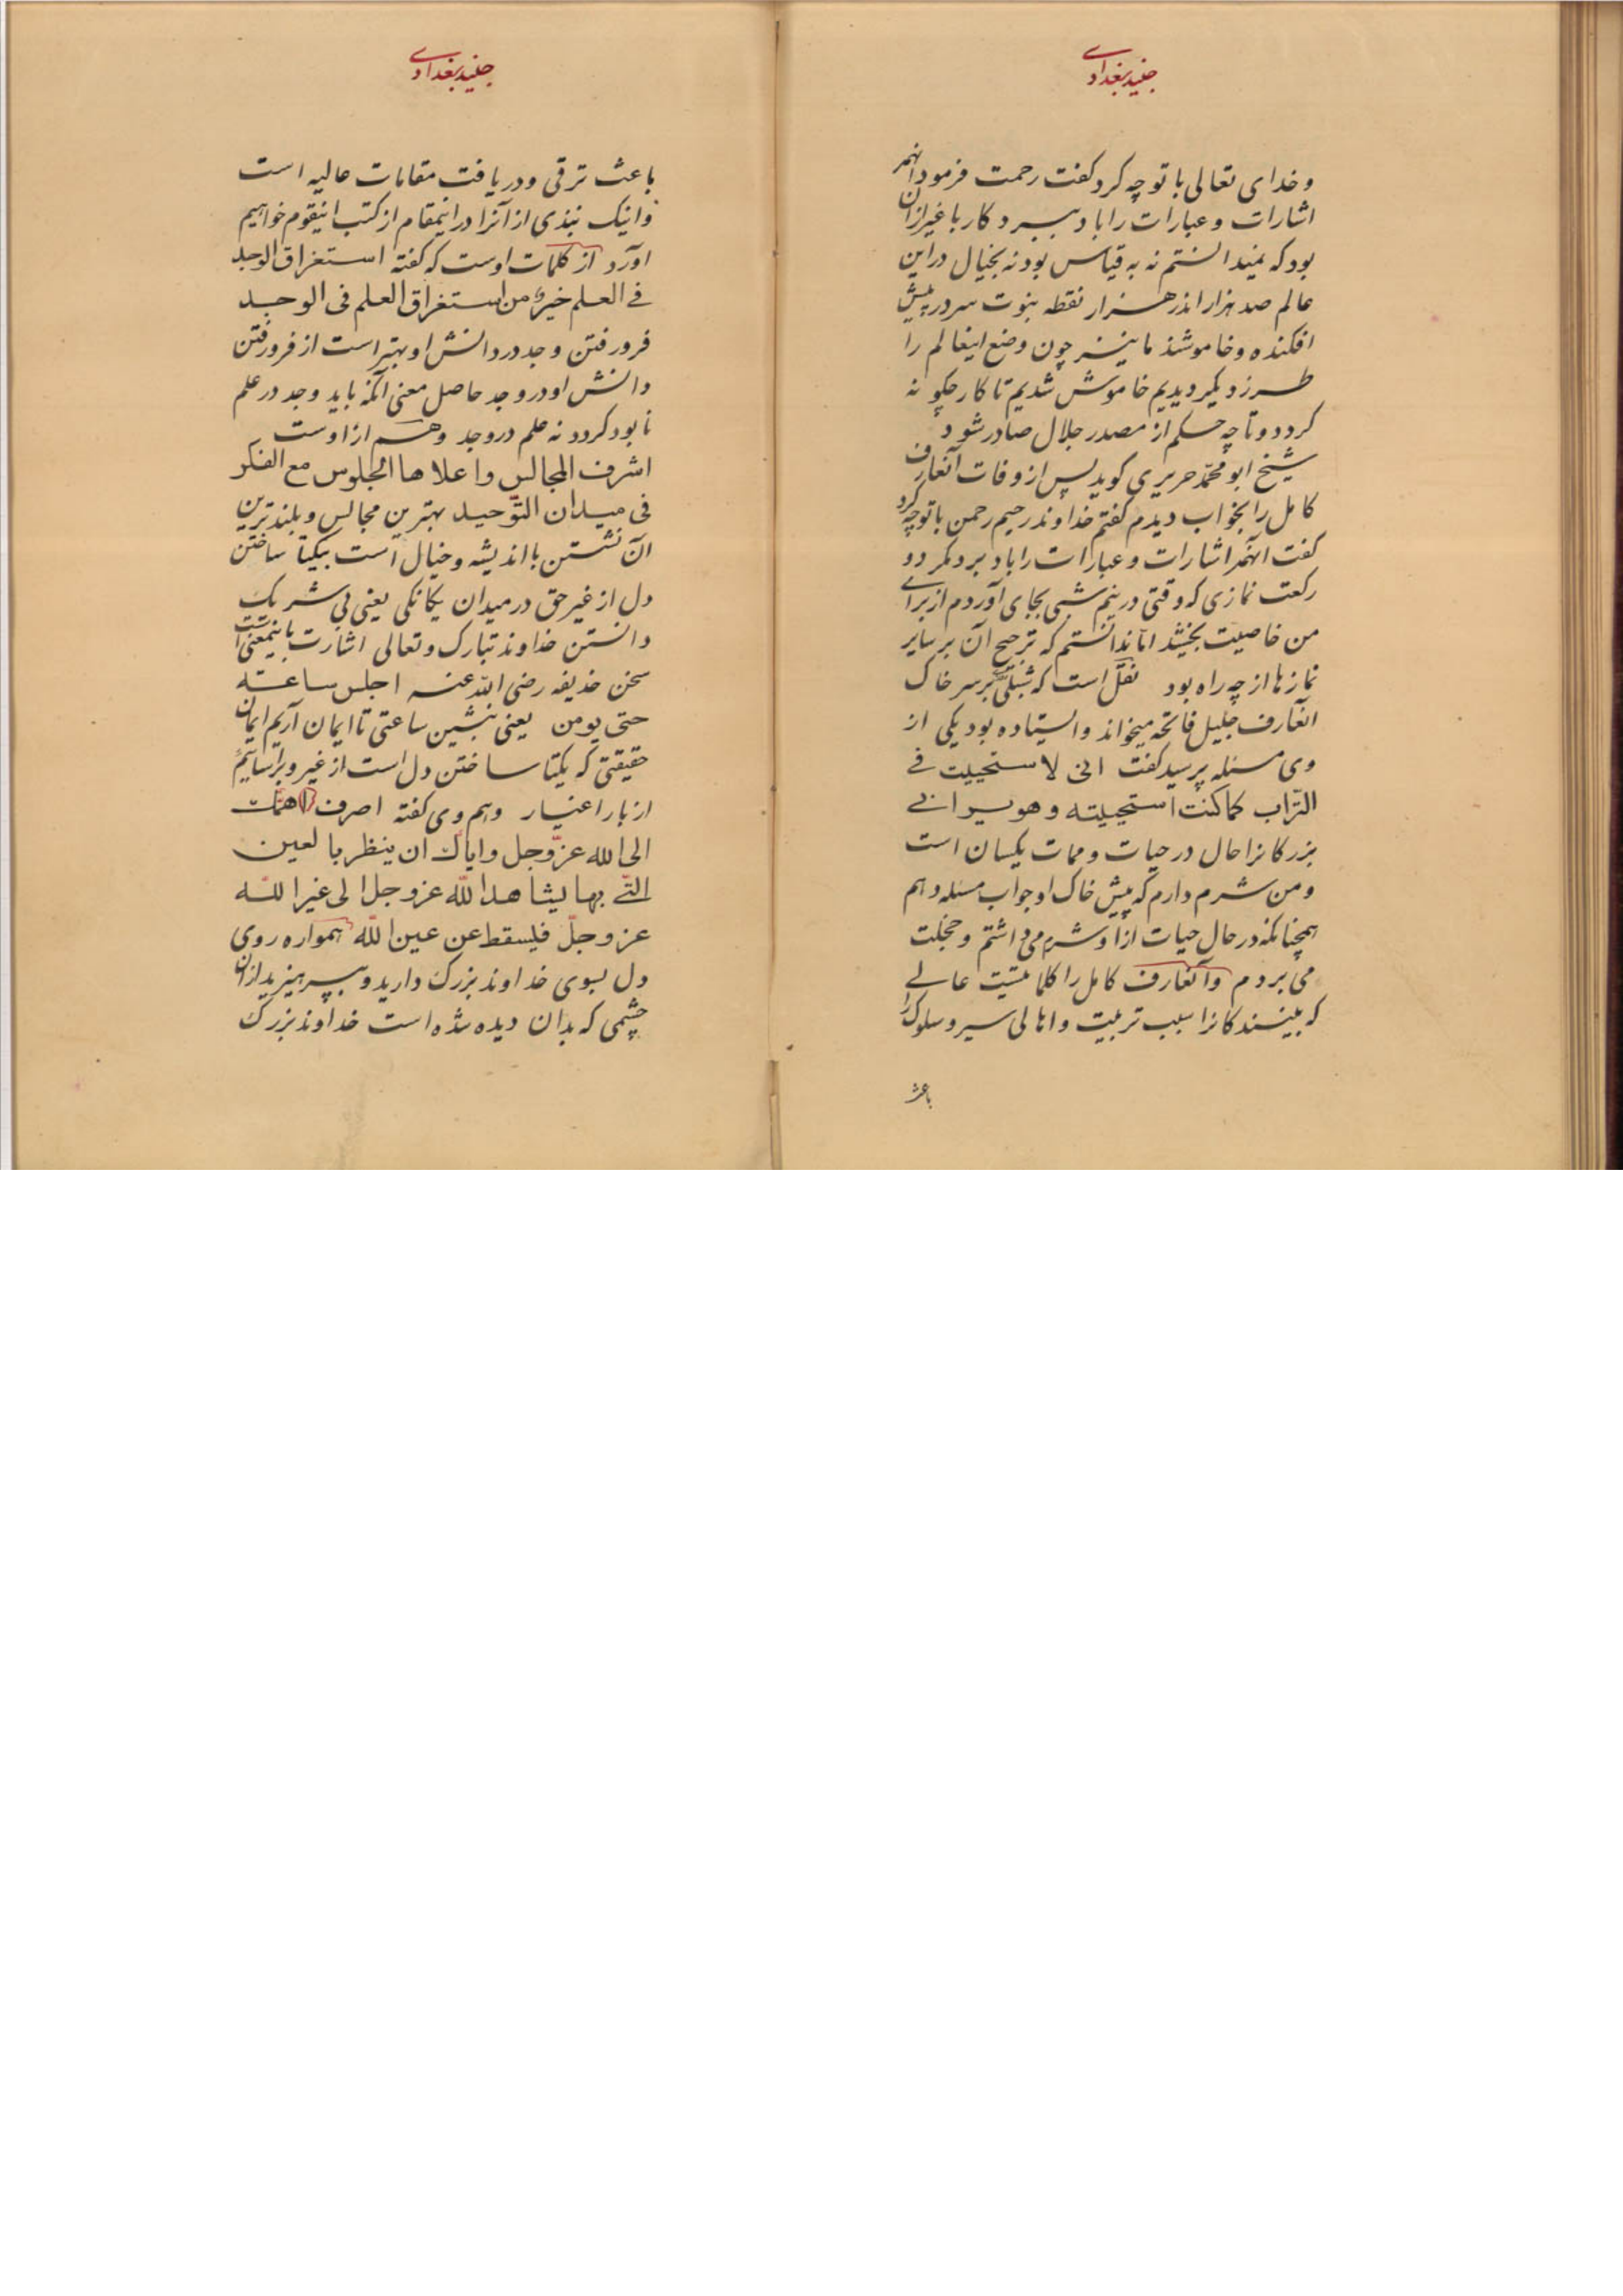 جنید بغدادی
و خدای تعالی با تو چه کرد گفت رحمت فرمود انهمه
اشارات و عبارات را باد ببرد کار با غیر از ان
بود که نمیدانستم نه به قیاس بود نه بخیال در این
عالم صد هزار اندر هزار نقطه نبوت سر در پیش
افکنده و خاموشند ما نیز چون وضع اینعالم را
طرز دیگر دیدیم خاموش شدیم تا کار چگونه
کردد و تا چه حکم از مصدر جلال صادر شود
شیخ ابو محمد حریری کوید پس از وفات آنعارف
کامل را بخواب دیدم گفتم خداوند رحیم رحمن با تو چه کرد
گفت انهمه اشارات و عبارات را باد برد مکر دو
رکعت نمازی که وقتی در نیم شبی بجای آوردم از برای
من خاصیت بخشید اما ندانستم که ترجیح آن بر سایر
نمازها از چه راه بود نقل است که شبلی بر سر خاک
آنعارف جلیل فاتحه میخواند و ایستاده بود یکی از
وی مسئله پرسید گفت انی لاستحییت فی
التراب کما کنت استحییته و هو یرانی
بزرکانرا حال در حیات و ممات یکسان است
و من شرم دارم که پیش خاک او جواب مسئله دهم
همچنانکه در حال حیات ازاو شرم می داشتم و خجلت
می بردم و آنعارف کامل را کلماتیست عالی
که بینندکانرا سبب تربیت و اهالی سیر و سلوک را
باعث
جنید بغدادی
باعث ترقی و دریافت مقامات عالیه است
و اینک نبذی از آنرا در اینمقام از کتب اینقوم خواهیم
آورد از کلمات اوست که گفته استغراق الوجد
فی العلم خیر من استغراق العلم فی الوجد
فرو رفتن وجد در دانش او بهتر است از فرو رفتن
دانش او در وجد حاصل معنی آنکه باید وجد در علم
نابود کردد نه علم در وجد و هم ازاوست
اشرف المجالس و اعلاها الجلوس مع الفکر
فی میدان التوحید بهترین مجالس و بلندترین
آن نشستن با اندیشه و خیال است بیکتا ساختن
دل از غیر حق در میدان یکانکی یعنی بی شریک
دانستن خداوند تبارک و تعالی اشارت باینمعنی است
سخن حذیفه رضی الله عنه اجلس ساعته
حتی یومن یعنی بنشین ساعتی تا ایمان آریم ایمان
حقیقتی که یکتا ساختن دل است از غیر و برآسائیم
از بار اغیار و هم وی گفته اصرف همک
الی الله عز و جل و ایاک ان ینظر بالعین
التی بها یشاهد الله عز و جل الی غیر الله
عز و جل فیسقط عن عین الله همواره روی
دل بسوی خداوند بزرک دارید و بپرهیزید از ان
چشمی که بدان دیده شده است خداوند بزرک